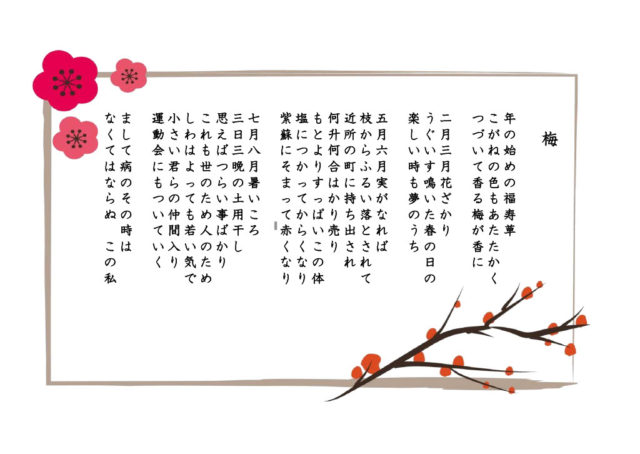 梅
年の始めの福寿草
こがねの色もあたたかく
つづいて香る梅が香に
二月三月花ざかり
うぐいす鳴いた春の日の
楽しい時も夢のうち
五月六月実がなれば
枝からふるい落とされて
近所の町に持ち出され
何升何合はかり売り
もとよりすっぱいこの体
塩につかってからくなり
紫蘇にそまって赤くなり
七月八月暑いころ
三日三晩の土用干し
思えばつらい事ばかり
これも世のため人のため
しわはよっても若い気で
小さい君らの仲間入り
運動会にもついていく
まして病のその時は
なくてはならぬ この私